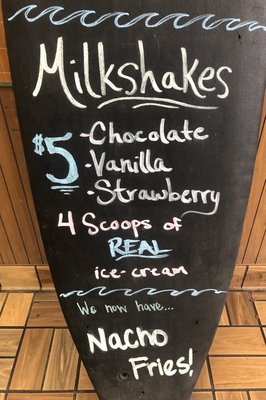 Milkshakes
$5 -Chocolate
-Vanilla
-Strawberry
4 Scoops of
REAL
ice-cream
We now have...
Nacho
Fries!